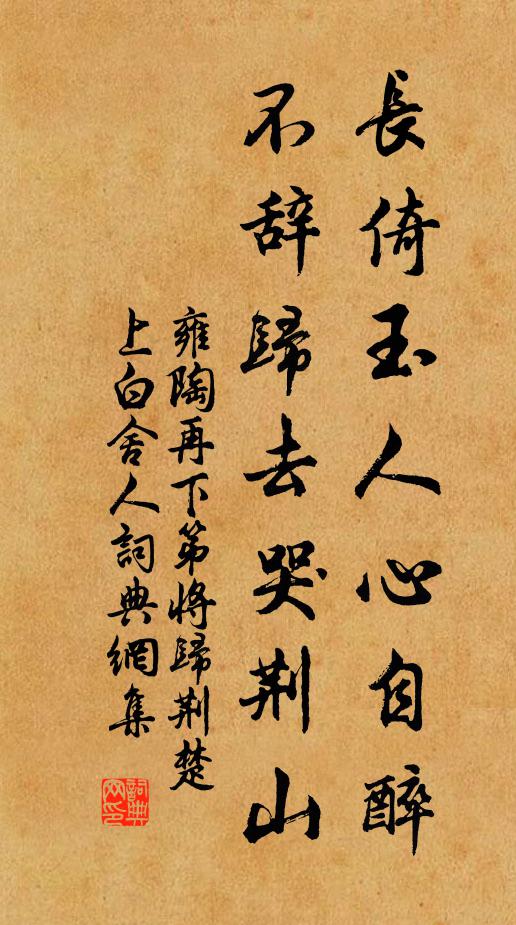 長倚玉人心自醉
不辞歸去哭荆山
雍陶再下第将歸荆楚
上白舍人詞典網集
詞典网印